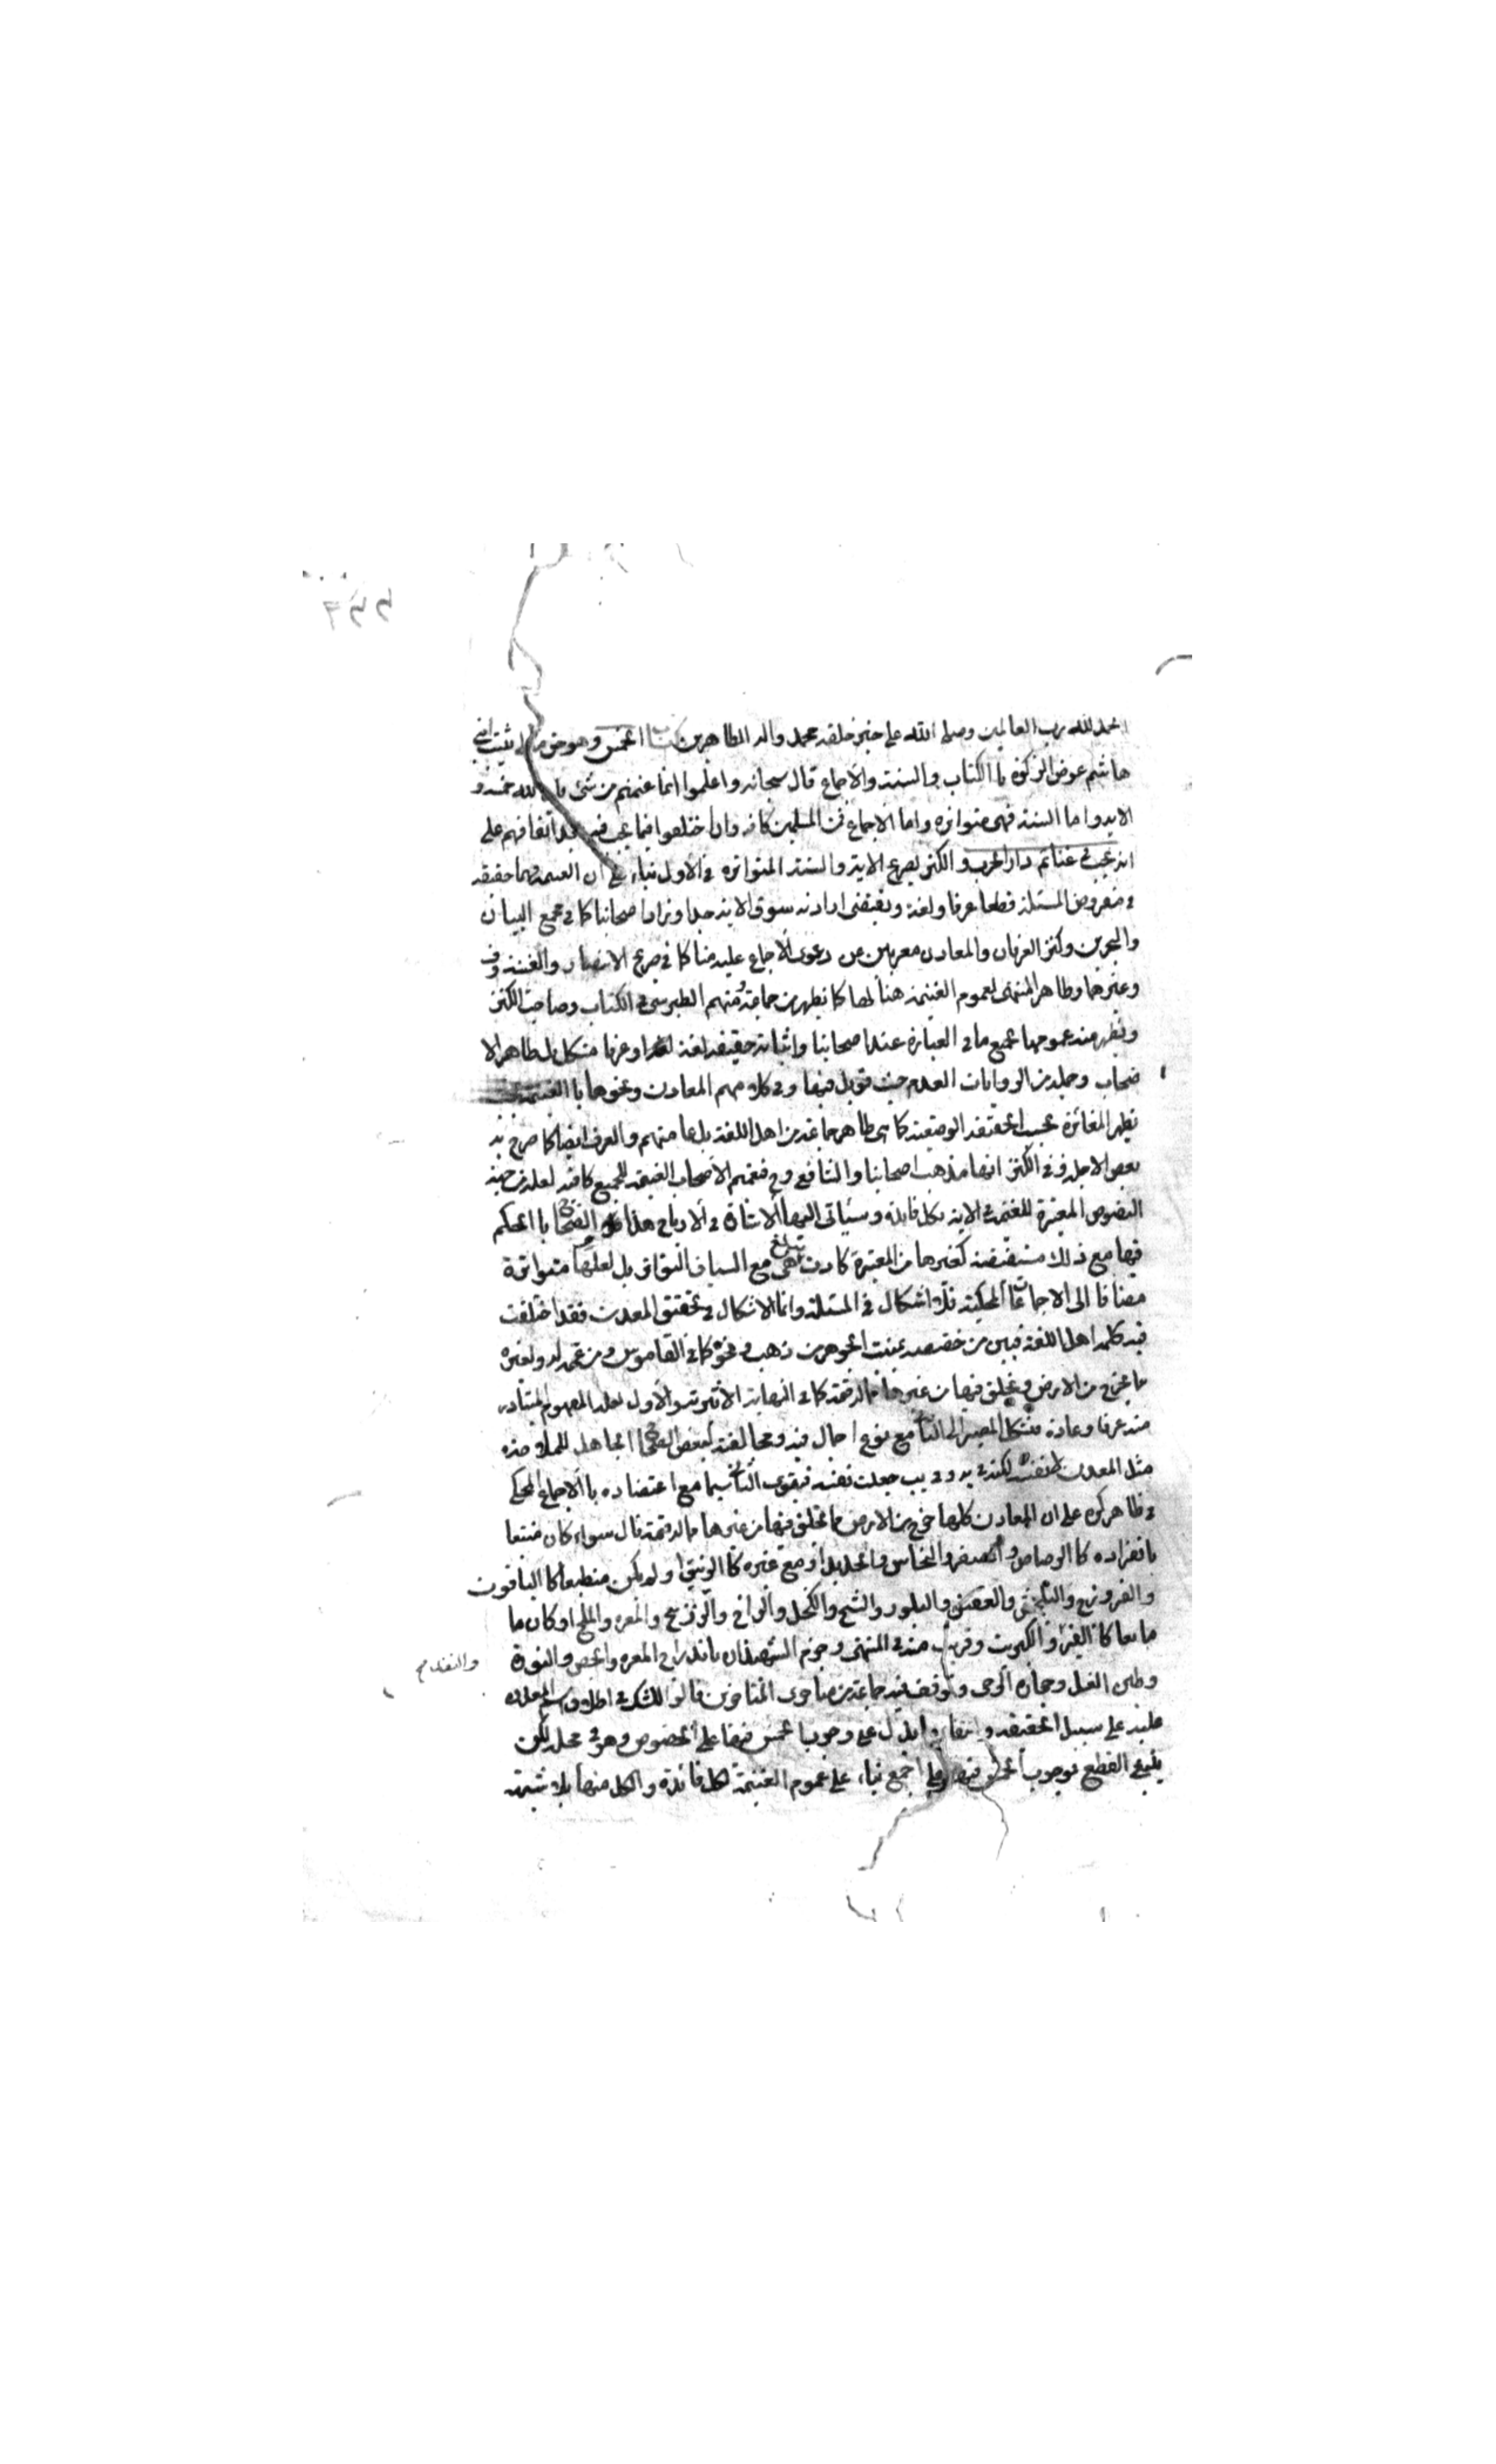 الحمد لله رب العالمين وصلى الله على خير خلقه محمد واله الطاهرين كتاب الخمس وهو حق مالى يثبت لبنى
هاشم عوض الزكوة با الكتاب والسنة والاجماع قال سبحانه واعلموا انما غنمتم من شئ فان لله خمسه و
الايه واما السنة فهى متواتره واما الاجماع فمن المسلمين كافه وان اختلفوا فيما يجب فيه بعد اتفاقهم على
انه يجب فى غنائم دار الحرب و الكنز لصريح الاية والسنة المتواتره فى الاول بناء على ان الغنيمة حقيقه
فى مفروض المسئلة قطعا عرفا ولغة ويقتضى ارادته سوق الايه جدا وزاد اصحابنا كما فى مجمع البيان
والبحرين وكنز العرفان والمعادن معربين عن دعوى الاجماع عليه منا كما فى صريح الانتصار والغنية
وغيرهما وظاهر المنتهى لعموم الغنيمة هنا لها كما يظهر من جماعة منهم الطبرسى فى الكتاب وصاحب الكنز
ويظهر منه عمومها لجميع ما فى العبارة عند اصحابنا واثباته حقيقه لغة او عرفا مشكل بل ظاهر الا
صحاب وجملة من الروايات العدم حيث قوبل فيها وفى كلامهم المعادن ونحوها با الغنيمة
يظهر المغائرة بحسب الحقيقه الوضعية كما هى ظاهر جماعة من اهل اللغة بل عامتهم والعرف ايضا كما صرح به
بعض الاجلة وفى الكنز انها مذهب اصحابنا والشافعى وح فتعميم الاصحاب الغنيمة للجميع كافه لعله من جهة
النصوص المفسرة للغنيمة فى الايه بكل فايدة وسيئاتى اليها الاشارة فى الارباح هذا الصحاح با الحكم
فيها مع ذلك مستفيضة كغيرها من المعتبرة كادت تبلغ هى مع السياق التواتر بل لعلها متواترة
مضافا الى الاجماعات المحكية فلا اشكال فى المسئلة وانما الاشكال فى تحقيق المعدن فقد اختلفت
فيه كلمة اهل اللغة فبين من خصصه بمنبت الجوهر من ذهب ونحوه كما فى القاموس ومن عممه له ولغيره
ما يخرج من الارض ويخلق فيها من غيرها مما له قيمة كما فى النهاية الاثيرية والاول لعله المفهوم المتبادر
منه عرفا وعادة فيشكل المصير الى الثانى مع نوع اجمال فيه ومخالفته لبعض الصحاح الجاهل للملاحة
مثل المعدن لا نفسه لكنه فى يه و فى يب جعلت نفسه فيقوى الثانى سيما مع اعتضاده با الاجماع المحكى
فى ظاهر كره على ان المعادن كلما خرج من الارض مما يخلق فيها من غيرها مما له قيمة قال سواء كان منطبعا
بانفراده كا الرصاص والصفر والنحاس والحديد او مع غيره كا الزيبق او لم يكن منطبعا كا الياقوت
والفيروزج والبلخش والعقيق والبلور والشبح والكحل والزاج والزرنيخ والمغره والملح او كان ما
مايعا كا القير والكبريت وقريب منه فى المنتهى وجزم الشهيدان باندراج المغره والجص والنورة
والنفط
وطين الغسل وحجارة الرحى وتوقف فيه جماعة من متاخرى المتاخرين قالوا للشك فى اطلاق اسم المعدن
عليه على سبيل الحقيقه وانتفاء ما يدل على وجوب الخمس فيها على الخصوص وهو فى محله لكن
ينبغى القطع بوجوب الخمس فيها اجمع بناء على عموم الغنيمة لكل فائدة والكل منها بلا شبهة